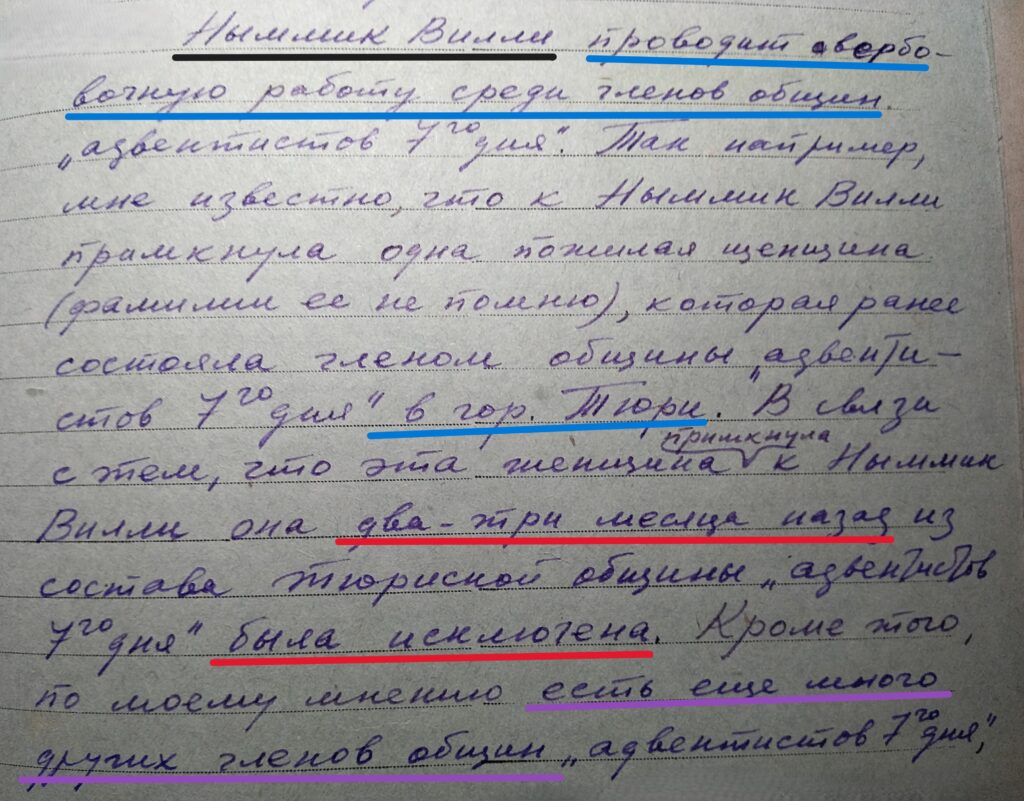 Ныммик Вилли проводит вербо-
вочную работу среди членов общин
„адвентистов 7го дня“. Так например,
мне известно, что к Ныммик Вилли
примкнула одна пожилая женщина
(фамилии ее не помню), которая ранее
состояла членом общины „адвенти-
стов 7го дня“ в гор. Тюри. В связи
примкнула
с тем, что эта женщина к Ныммик
Вилли она два-три месяца назад из
состава тюриской общины „адвентистов
7го дня“ была исключена. Кроме того,
по моему мнению есть еще много
других членов общин „адвентистов 7го дня“,